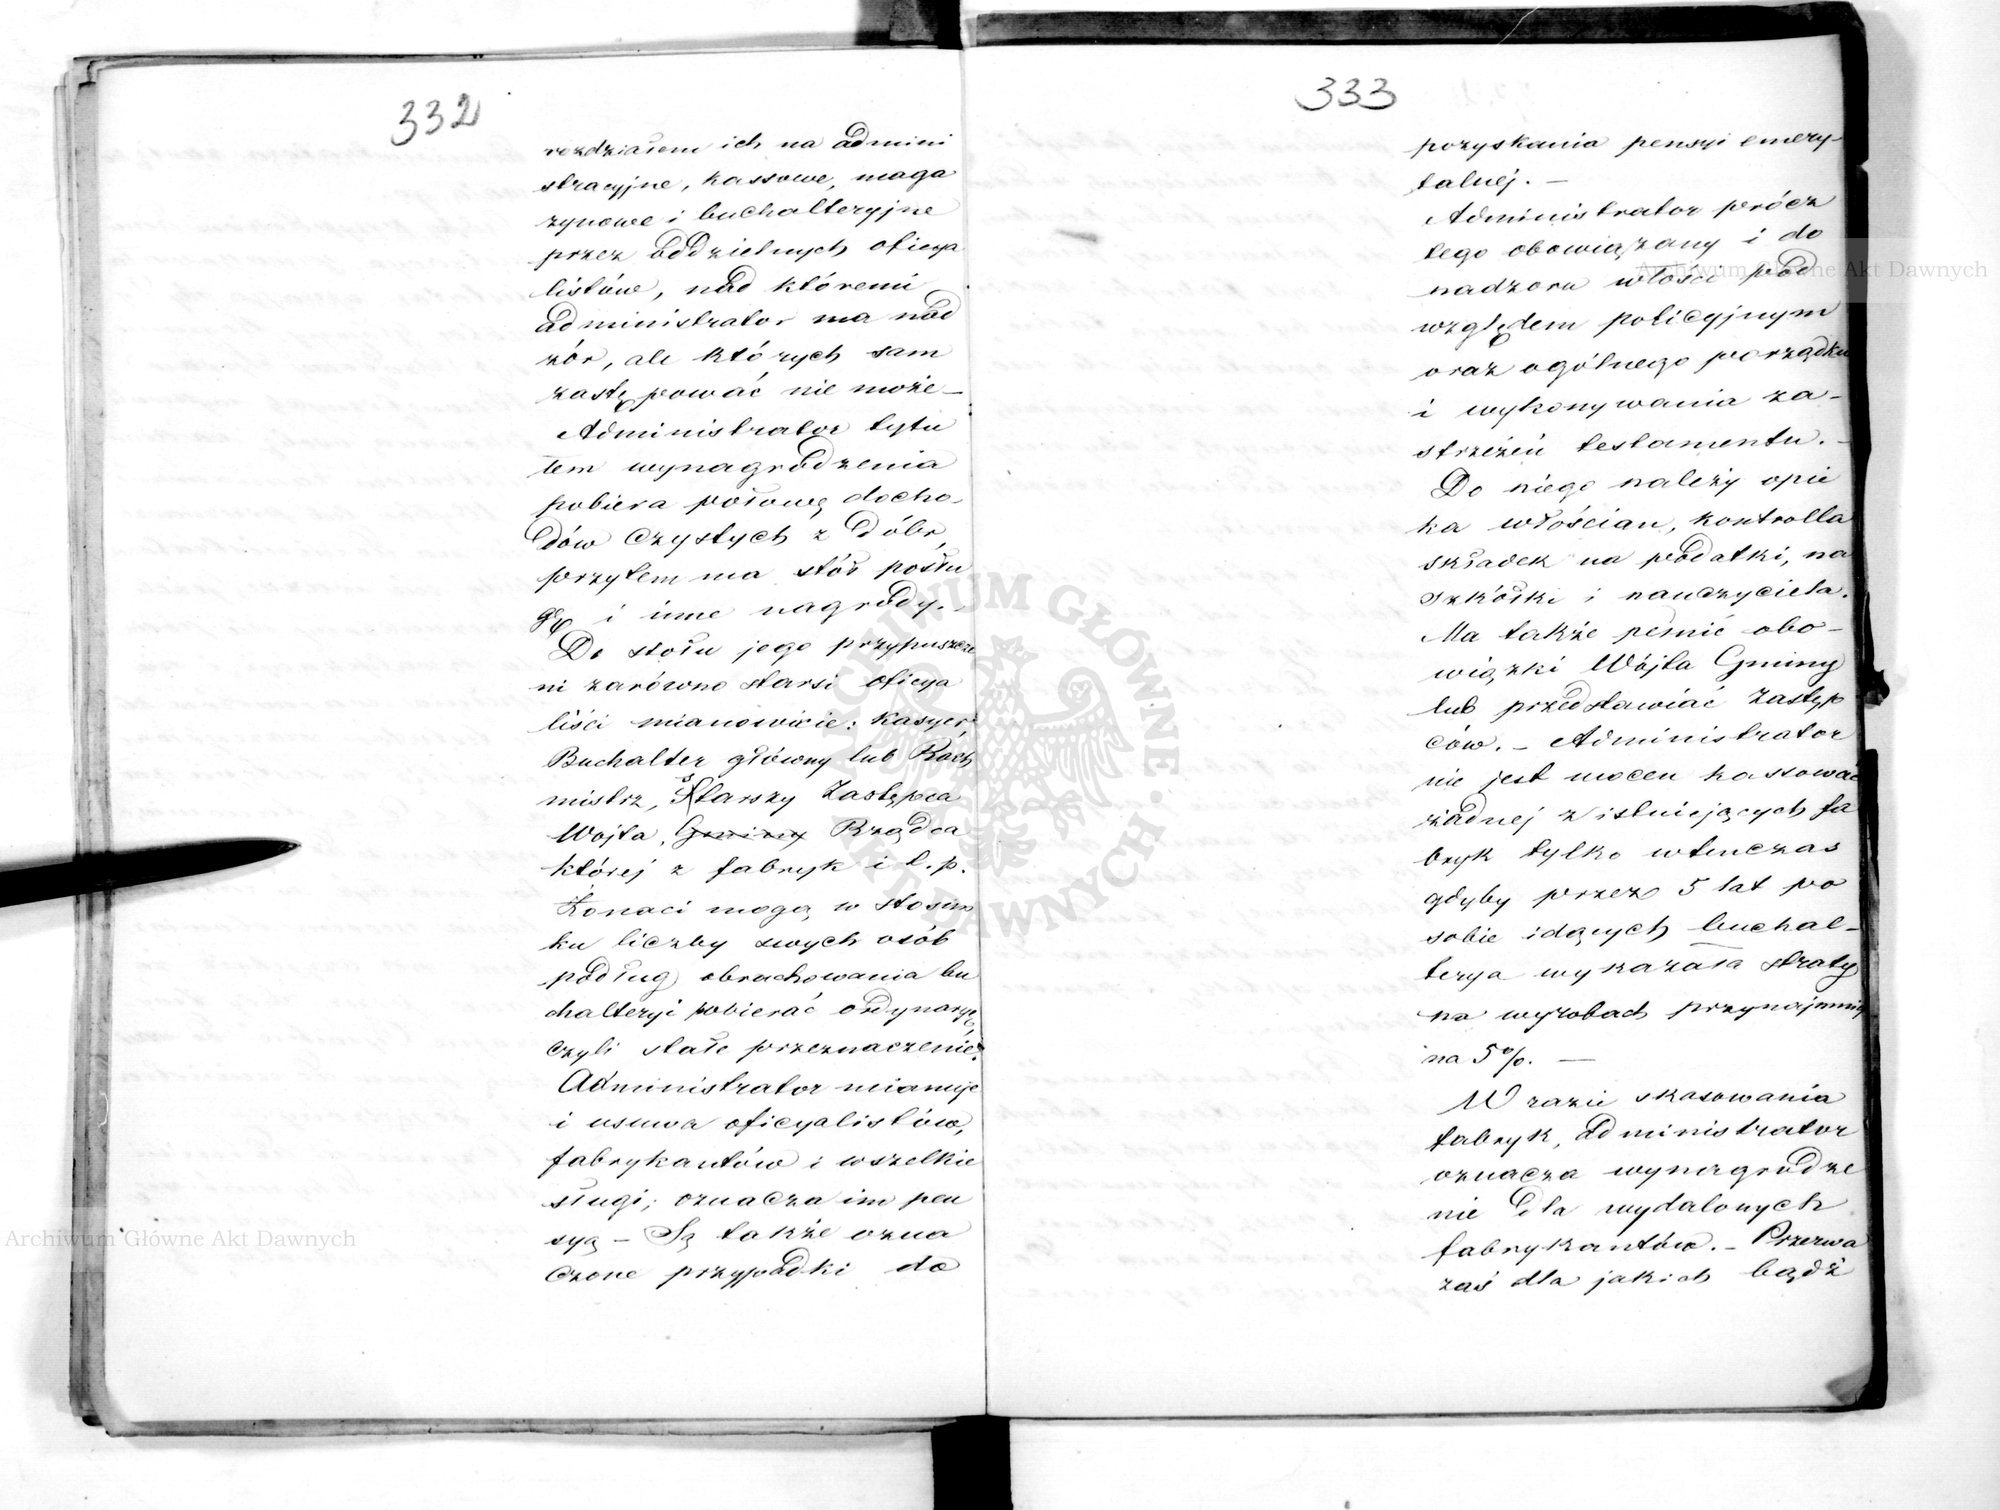 332
rozdziałem ich na admini
stracyjne, kassowe, maga
zynowe i buchalteryjne
przez oddzielnych oficya
listów, nad któremi
administrator ma nad
zór, ale których sam
zastępować nie może –
Administrator tytu
łem wynagrodzenia
pobiera połowę docho-
dów czystych z dóbr,
przytem ma stół posłu
gę i inne nagrody. –
Do stołu jego przypuszcze
ni zarówno starsi oficya
liści mianowicie: Kasyer,
Buchalter główny lub Rach
mistrz, Starszy Zastępca
Wójta, Gminy Rządca
której z fabryk i t. p.
Żonaci mogą w stosun
ku liczby swych osób
podług obrachowania bu
chalteryi pobierać ordynaryę
czyli stałe przeznaczenie.
Administrator mianuje
i usuwa oficyalistów,
fabrykantów i wszelkie
sługi; oznacza im pen
syą – Są także ozna
czone przypadki do
333
pozyskania pensyi emery-
talnéj. –
Administrator prócz
tego obowiązany i do
nadzoru włości pod
względem policyjnym
oraz ogólnego porządku
i wykonywania za-
strzeżeń testamentu. –
Do niego należy opie
ka włościan, kontrolla
składek na podatki, na
szkółki i nauczyciela.
Ma także pełnić obo-
wiązki Wójta Gminy
lub przedstawiać Zastęp
ców. – Administrator
nie jest mocen kassować
żadnej z istniejących fa
bryk tylko wtenczas
gdyby przez 5 lat po
sobie idących buchal-
terya wykazała straty
na wyrobach przynajmniej
na 5%. —
W razie skasowania
fabryk, administrator
oznacza wynagrodze
nie dla wydalonych
fabrykantów. – Przerwa
zaś dla jakich bądź
Archiwum Główne Akt Dawnych
Archiwum Główne Akt Dawnych
ARCHIWUM GŁÓWNE · AKT DAWNYCH ·